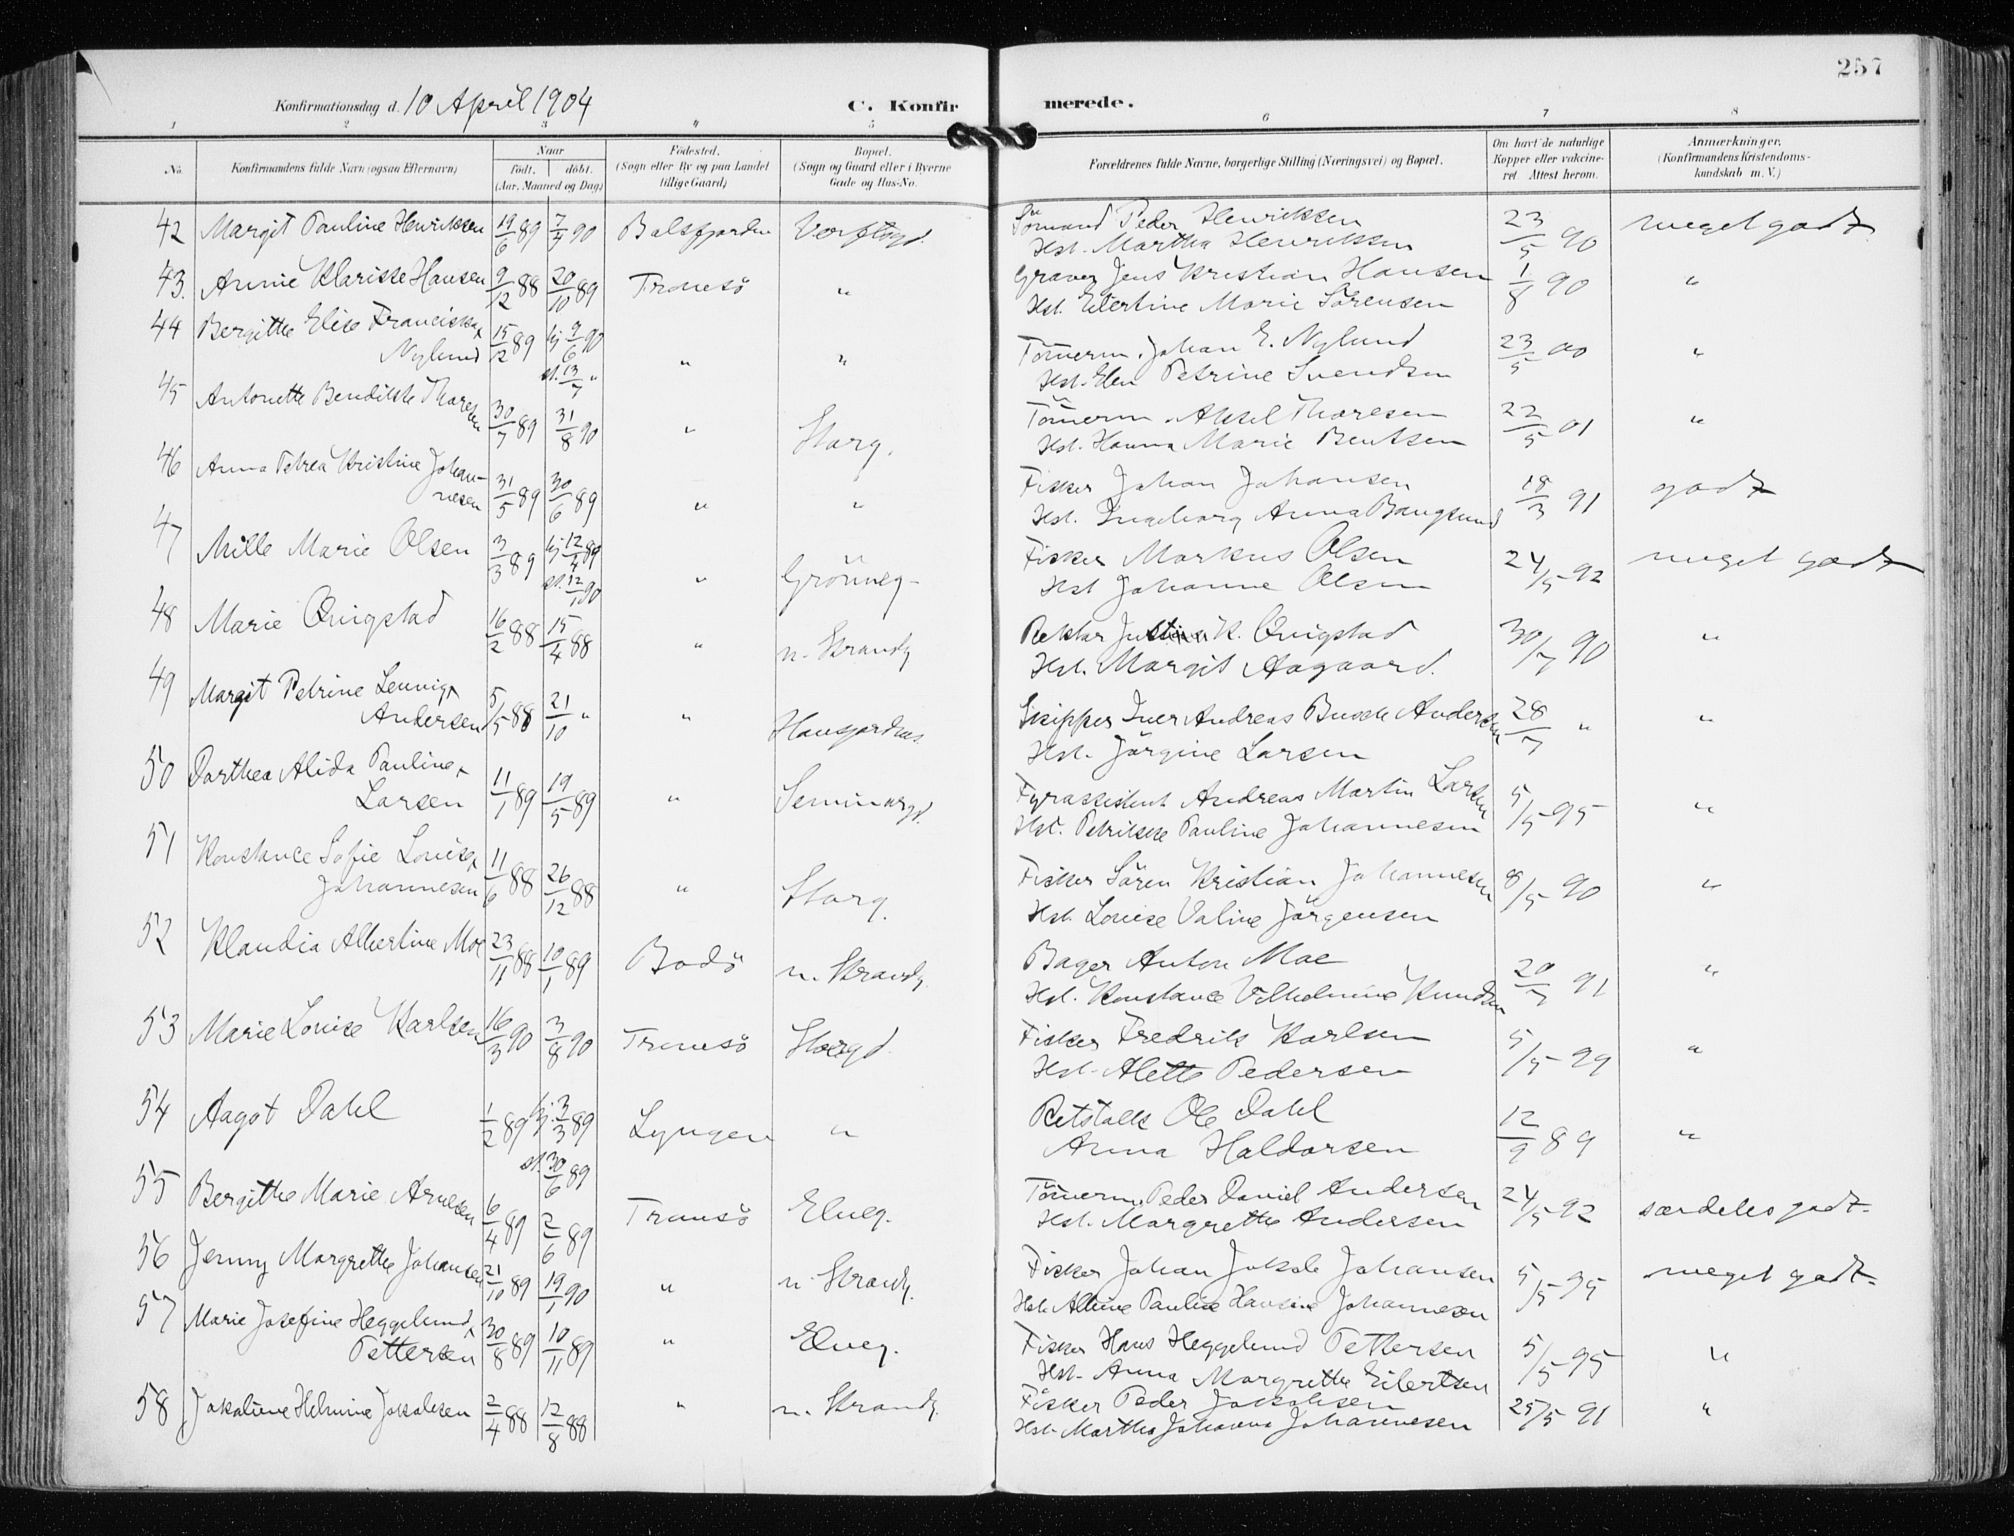 257
Konfirmationsdag d. 10 April 1904 C. Konfirmerede.
1 2 3 4 5 6 7 8
No. Konfirmandens fulde Navn (ogsaa Efternavn) Naar født. døbt. (Aar, Maaned og Dag) Fødested. (Sogn eller By og paa Landet tillige Gaard) Bopæl. (Sogn og Gaard eller i Byerne Gade og Hus-No. Forældrenes fulde Navne, borgerlige Stilling (Næringsvei) og Bopæl. Om havt de naturlige Kopper eller vaccineret Attest herom. Anmærkninger, (Konfirmandens Kristendomskundskab m. V.)
42 Margit Pauline Henriksen 19/6 89 7/4 90 Balsfjorden Verftsgd. Sömand Peder Henriksen 23/5 90 meget godt
Hst. Martha Henriksen
43. Annie Klarisse Hansen 9/12 88 20/10 89 Tromsö " Graver Jens Kristian Hansen 1/8 90 "
Hst. Edertine Marie Sörensen
44 Bergitte Elise Franciska 15/12 89 hj 9/6 90 " " Tömerm. Johan E. Nylund 23/5 00 "
Nylund st. 13/7 " Hst. Elen Petrine Svendsen
45 Antonette Bendikte Tharesen 30/7 89 31/8 90 " Storg. Tömerm. Aksel Tharesen 22/5 01 "
Hst. Hanna Marie Bentsen
46 Anna Petrea Kristine Johannesen 31/5 89 30/6 89 " " Fisker Johan Johansen 18/3 91 godt
Hst. Ingeborg Anna Bangsund
47 Mille Marie Olsen 3/3 89 hj 12/4 89 " Grönneg. Fisker Markus Olsen 24/5 92 meget godt
st. 12/1 90 Hst Johanne Olsen
48 Marie Qvigstad 16/2 88 15/4 88 " n. Strandg Rektor Just K. Qvigstad 30/7 90 "
Hst. Margit Aagaard.
49 Margit Petrine Lennig 5/5 88 21/10 " " Hansjordnes Skipper Iver Andreas Busch Andersen 28/7 " "
Andersen Hst. Jörgine Larsen
50 Dorthea Alida Pauline 11/1 89 19/5 89 " Seminargd. Fyrassistent Andreas Martin Larsen 5/5 95 "
Larsen Hst. Petrikke Pauline Johannesen
51 Konstance Sofie Louise 11/6 88 26/12 88 " Storg. Fisker Sören Kristian Johannesen 8/5 90 "
Johannesen Hst. Louise Valine Jörgensen
52 Klandia Albertine Moe 23/11 88 10/1 89 Bodö n. Strandg. Bager Anton Moe 20/7 91 "
Hst. Konstance Vilhelmine Knudsen
53 Marie Louise Karlsen 16/3 90 3/8 90 Tromsö Storgd. Fisker Fredrik Karlsen 5/5 99 "
Hst. Alette Pedersen
54 Aagot Dahl 1/2 89 hj. 3/3 89 Lyngen " Ole Dahl 12/9 89 "
st. 30/6 89 Anna Haldorsen
55 Bergithe Marie Arnesen 6/4 89 2/6 89 Tromsö Elveg. Tömerm. Peder Daniel Andersen 24/5 92 særdeles godt.
Hst. Margrethe Andersen
56 Jenny Margrethe Johansen 21/10 89 19/1 90 " n. Strandg. Fisker Johan Jakob Johansen 5/5 95 meget godt.
Hst. Albine Pauline Hansine Johannesen
57 Marie Josefine Heggelund 30/8 89 10/11 89 " Elveg. Fisker Hans Heggelund Pettersen 5/5 95 "
Pettersen Hst. Anna Margrethe Eilertsen
58 Jakobine Helmine Jakobsen 2/4 88 12/8 88 " n. Strandg. Fisker Peder Jakobsen 25/5 91 "
Hst. Martha Johanna Johannesen